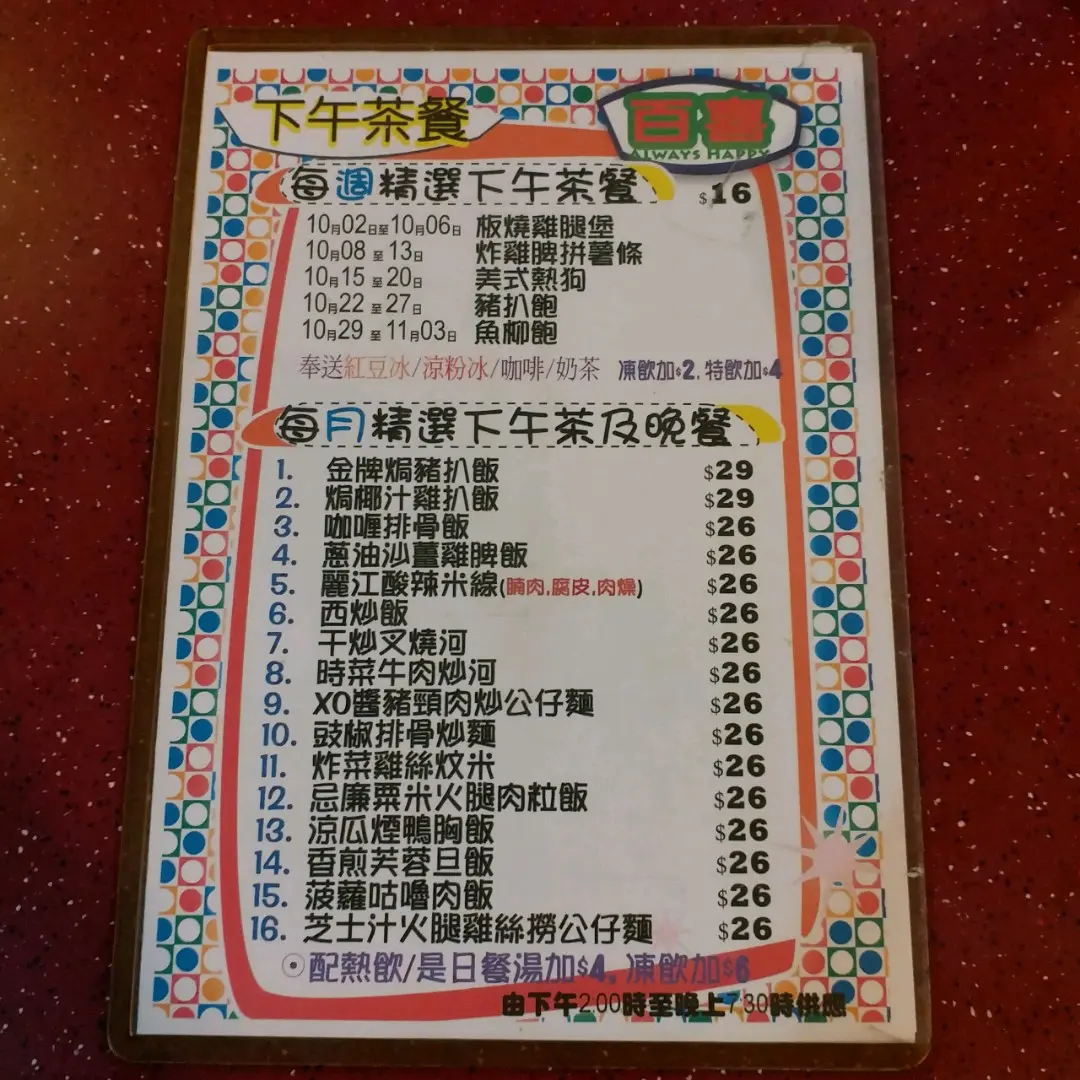 下午茶餐
百喜
ALWAYS HAPPY
每週精選下午茶餐 $16
10月02日至10月06日 板燒雞腿堡
10月08至13日 炸雞脾拼薯條
10月15至20日 美式熱狗
10月22至27日 豬扒飽
10月29至11月03日 魚柳飽
奉送紅豆冰/涼粉冰/咖啡/奶茶 凍飲加$2, 特飲加$4
每月精選下午茶及晚餐
1. 金牌焗豬扒飯 $29
2. 焗椰汁雞扒飯 $29
3. 咖喱排骨飯 $26
4. 蔥油沙薑雞脾飯 $26
5. 麗江酸辣米線(腩肉,腐皮,肉燥) $26
6. 西炒飯 $26
7. 干炒叉燒河 $26
8. 時菜牛肉炒河 $26
9. XO醬豬頸肉炒公仔麵 $26
10. 豉椒排骨炒麵 $26
11. 炸菜雞絲炆米 $26
12. 忌廉粟米火腿肉粒飯 $26
13. 涼瓜煙鴨胸飯 $26
14. 香煎芙蓉旦飯 $26
15. 菠蘿咕嚕肉飯 $26
16. 芝士汁火腿雞絲撈公仔麵 $26
配熱飲/是日餐湯加$4, 凍飲加$6
由下午2:00時至晚上7:30時供應